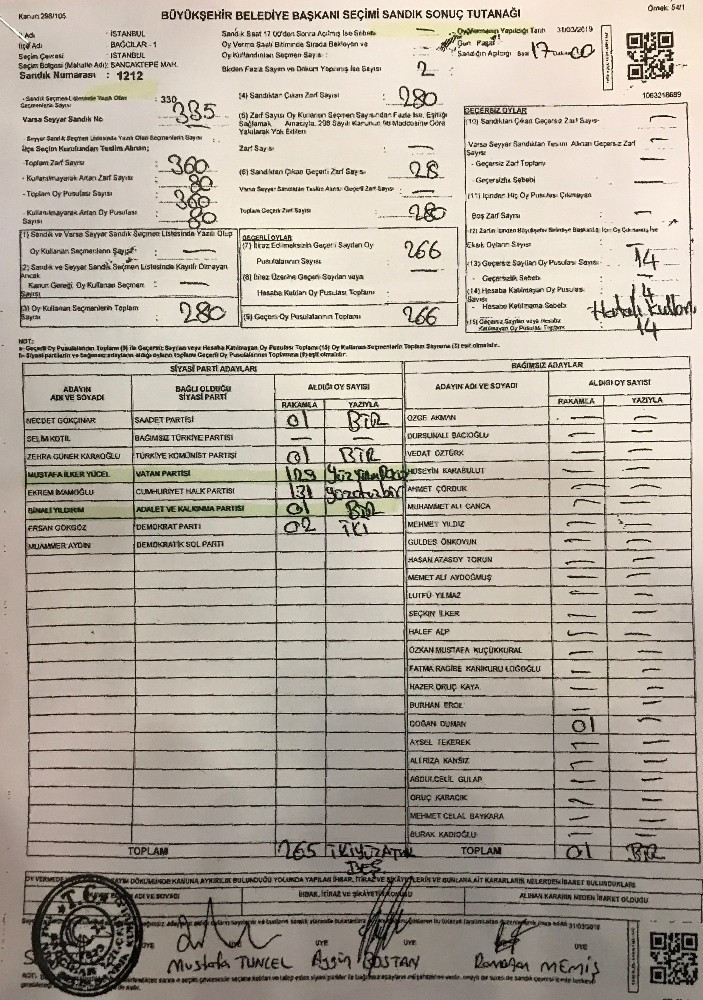 Kanun: 298/105
BÜYÜKŞEHİR BELEDİYE BAŞKANI SEÇİMİ SANDIK SONUÇ TUTANAĞI
Örnek: 54/1
İl Adı : İSTANBUL
İlçe Adı : BAĞCILAR - 1
Seçim Çevresi : İSTANBUL
Seçim Bölgesi (Mahalle Adı): SANCAKTEPE MAH.
Sandık Numarası : 1212
Sandık Saat 17.00'den Sonra Açılmış İse Sebebi
Oy Verme Saati Bitiminde Sırada Bekleyen ve
Oy Kullandırılan Seçmen Sayısı
Birden Fazla Sayım ve Döküm Yapılmış İse Sayısı 2
Oy Vermenin Yapıldığı Tarih 31/03/2019
Gün Pazar
Sandığın Açıldığı Saat 17 00
1063218689
- Sandık Seçmen Listesinde Yazılı Olan Seçmenlerin Sayısı : 330
335
Varsa Seyyar Sandık No
- Seyyar Sandık Seçmen Listesinde Yazılı Olan Seçmenlerin Sayısı
İlçe Seçim Kurulundan Teslim Alınan;
- Toplam Zarf Sayısı : 360
- Kullanılmayarak Artan Zarf Sayısı : 80
- Toplam Oy Pusulası Sayısı : 360
- Kullanılmayarak Artan Oy Pusulası Sayısı : 80
(4) Sandıktan Çıkan Zarf Sayısı : 280
(5) Zarf Sayısı Oy Kullanan Seçmen Sayısından Fazla İse, Eşitliği
Sağlamak Amacıyla, 298 Sayılı Kanunun 98 Maddesine Göre
Yakılarak Yok Edilen
Zarf Sayısı : —
(6) Sandıktan Çıkan Geçerli Zarf Sayısı : 28
Varsa Seyyar Sandıktan Teslim Alınan Geçerli Zarf Sayısı : —
Toplam Geçerli Zarf Sayısı : 280
GEÇERSİZ OYLAR
(10) Sandıktan Çıkan Geçersiz Zarf Sayısı : —
Varsa Seyyar Sandıktan Teslim Alınan Geçersiz Zarf Sayısı
- Geçersiz Zarf Toplamı : —
- Geçersizlik Sebebi : —
(11) İçinden Hiç Oy Pusulası Çıkmayan
Boş Zarf Sayısı : —
(12) Zarfın İçinden Büyükşehir Belediye Başkanlığı İçin Oy Çıkmamış İse
Eksik Oyların Sayısı : —
(13) Geçersiz Sayılan Oy Pusulası Sayısı : 14
- Geçersizlik Sebebi : —
(14) Hesaba Katılmayan Oy Pusulası Sayısı : 14
- Hesaba Katılmama Sebebi : Hatalı Kullan
(15) Geçersiz Sayılan veya Hesaba Katılmayan Oy Pusulası Toplamı : 14
(1) Sandık ve Varsa Seyyar Sandık Seçmen Listesinde Yazılı Olup
Oy Kullanan Seçmenlerin Sayısı : —
(2) Sandık ve Seyyar Sandık Seçmen Listesinde Kayıtlı Olmayan Ancak
Kanun Gereği, Oy Kullanan Seçmen Sayısı : —
(3) Oy Kullanan Seçmenlerin Toplam Sayısı : 280
GEÇERLİ OYLAR
(7) İtiraz Edilmeksizin Geçerli Sayılan Oy
Pusulalarının Sayısı : 266
(8) İtiraz Üzerine Geçerli Sayılan veya
Hesaba Katılan Oy Pusulası Toplamı : —
(9) Geçerli Oy Pusulalarının Toplamı : 266
NOT:
a- Geçerli Oy Pusulalarının Toplamı (9) ile Geçersiz Sayılan veya Hesaba Katılmayan Oy Pusulası Toplamı (15) Oy Kullanan Seçmenlerin Toplam Sayısına (3) eşit olmalıdır.
b- Siyasi partilerin ve bağımsız adayların aldığı oyların toplamı Geçerli Oy Pusulalarının Toplamına (9) eşit olmalıdır.
SİYASİ PARTİ ADAYLARI
BAĞIMSIZ ADAYLAR
ADAYIN ADI VE SOYADI BAĞLI OLDUĞU SİYASİ PARTİ ALDIĞI OY SAYISI RAKAMLA YAZIYLA
ADAYIN ADI VE SOYADI ALDIĞI OY SAYISI RAKAMLA YAZIYLA
NECDET GÖKÇINAR SAADET PARTİSİ 01 BİR
SELİM KOTİL BAĞIMSIZ TÜRKİYE PARTİSİ — —
ZEHRA GÜNER KARAOĞLU TÜRKİYE KOMÜNİST PARTİSİ 01 BİR
MUSTAFA İLKER YÜCEL VATAN PARTİSİ 129
EKREM İMAMOĞLU CUMHURİYET HALK PARTİSİ 131 yüzotuzbir
BİNALİ YILDIRIM ADALET VE KALKINMA PARTİSİ 01 BİR
ERSAN GÖKGÖZ DEMOKRAT PARTİ 02 İKİ
MUAMMER AYDIN DEMOKRATİK SOL PARTİ
ÖZGE AKMAN — —
DURSUNALİ BACIOĞLU — —
VEDAT ÖZTÜRK — —
HÜSEYİN KARABULUT — —
AHMET ÇÖRDÜK — —
MUHAMMET ALİ CANCA — —
MEHMET YILDIZ — —
GÜLDES ÖNKOYUN — —
HASAN ATASOY TORUN — —
MEMET ALİ AYDOĞMUŞ — —
LÜTFÜ YILMAZ — —
SEÇKİN İLKER — —
HALEF ALP — —
ÖZKAN MUSTAFA KÜÇÜKKURAL — —
FATMA RAGİBE KANIKURU LOĞOĞLU — —
HAZER ORUÇ KAYA — —
BURHAN EROL — —
DOĞAN DUMAN 01 —
AYSEL TEKEREK — —
ALİ RIZA KANSIZ — —
ABDULCELİL GÜLAP — —
ORUÇ KARACIK — —
MEHMET CELAL BAYKARA — —
BURAK KADIOĞLU — —
TOPLAM 265 İKİYÜZATMIŞ BEŞ
TOPLAM 01 BİR
ADI VE SOYADI
İHBAR, İTİRAZ VE ŞİKAYETİN KONUSU
ALINAN KARARIN NEDEN İBARET OLDUĞU
31/03/2019
ÜYE ÜYE ÜYE
Mustafa TUNCEL
BOSTAN
Ramazan MEMİŞ